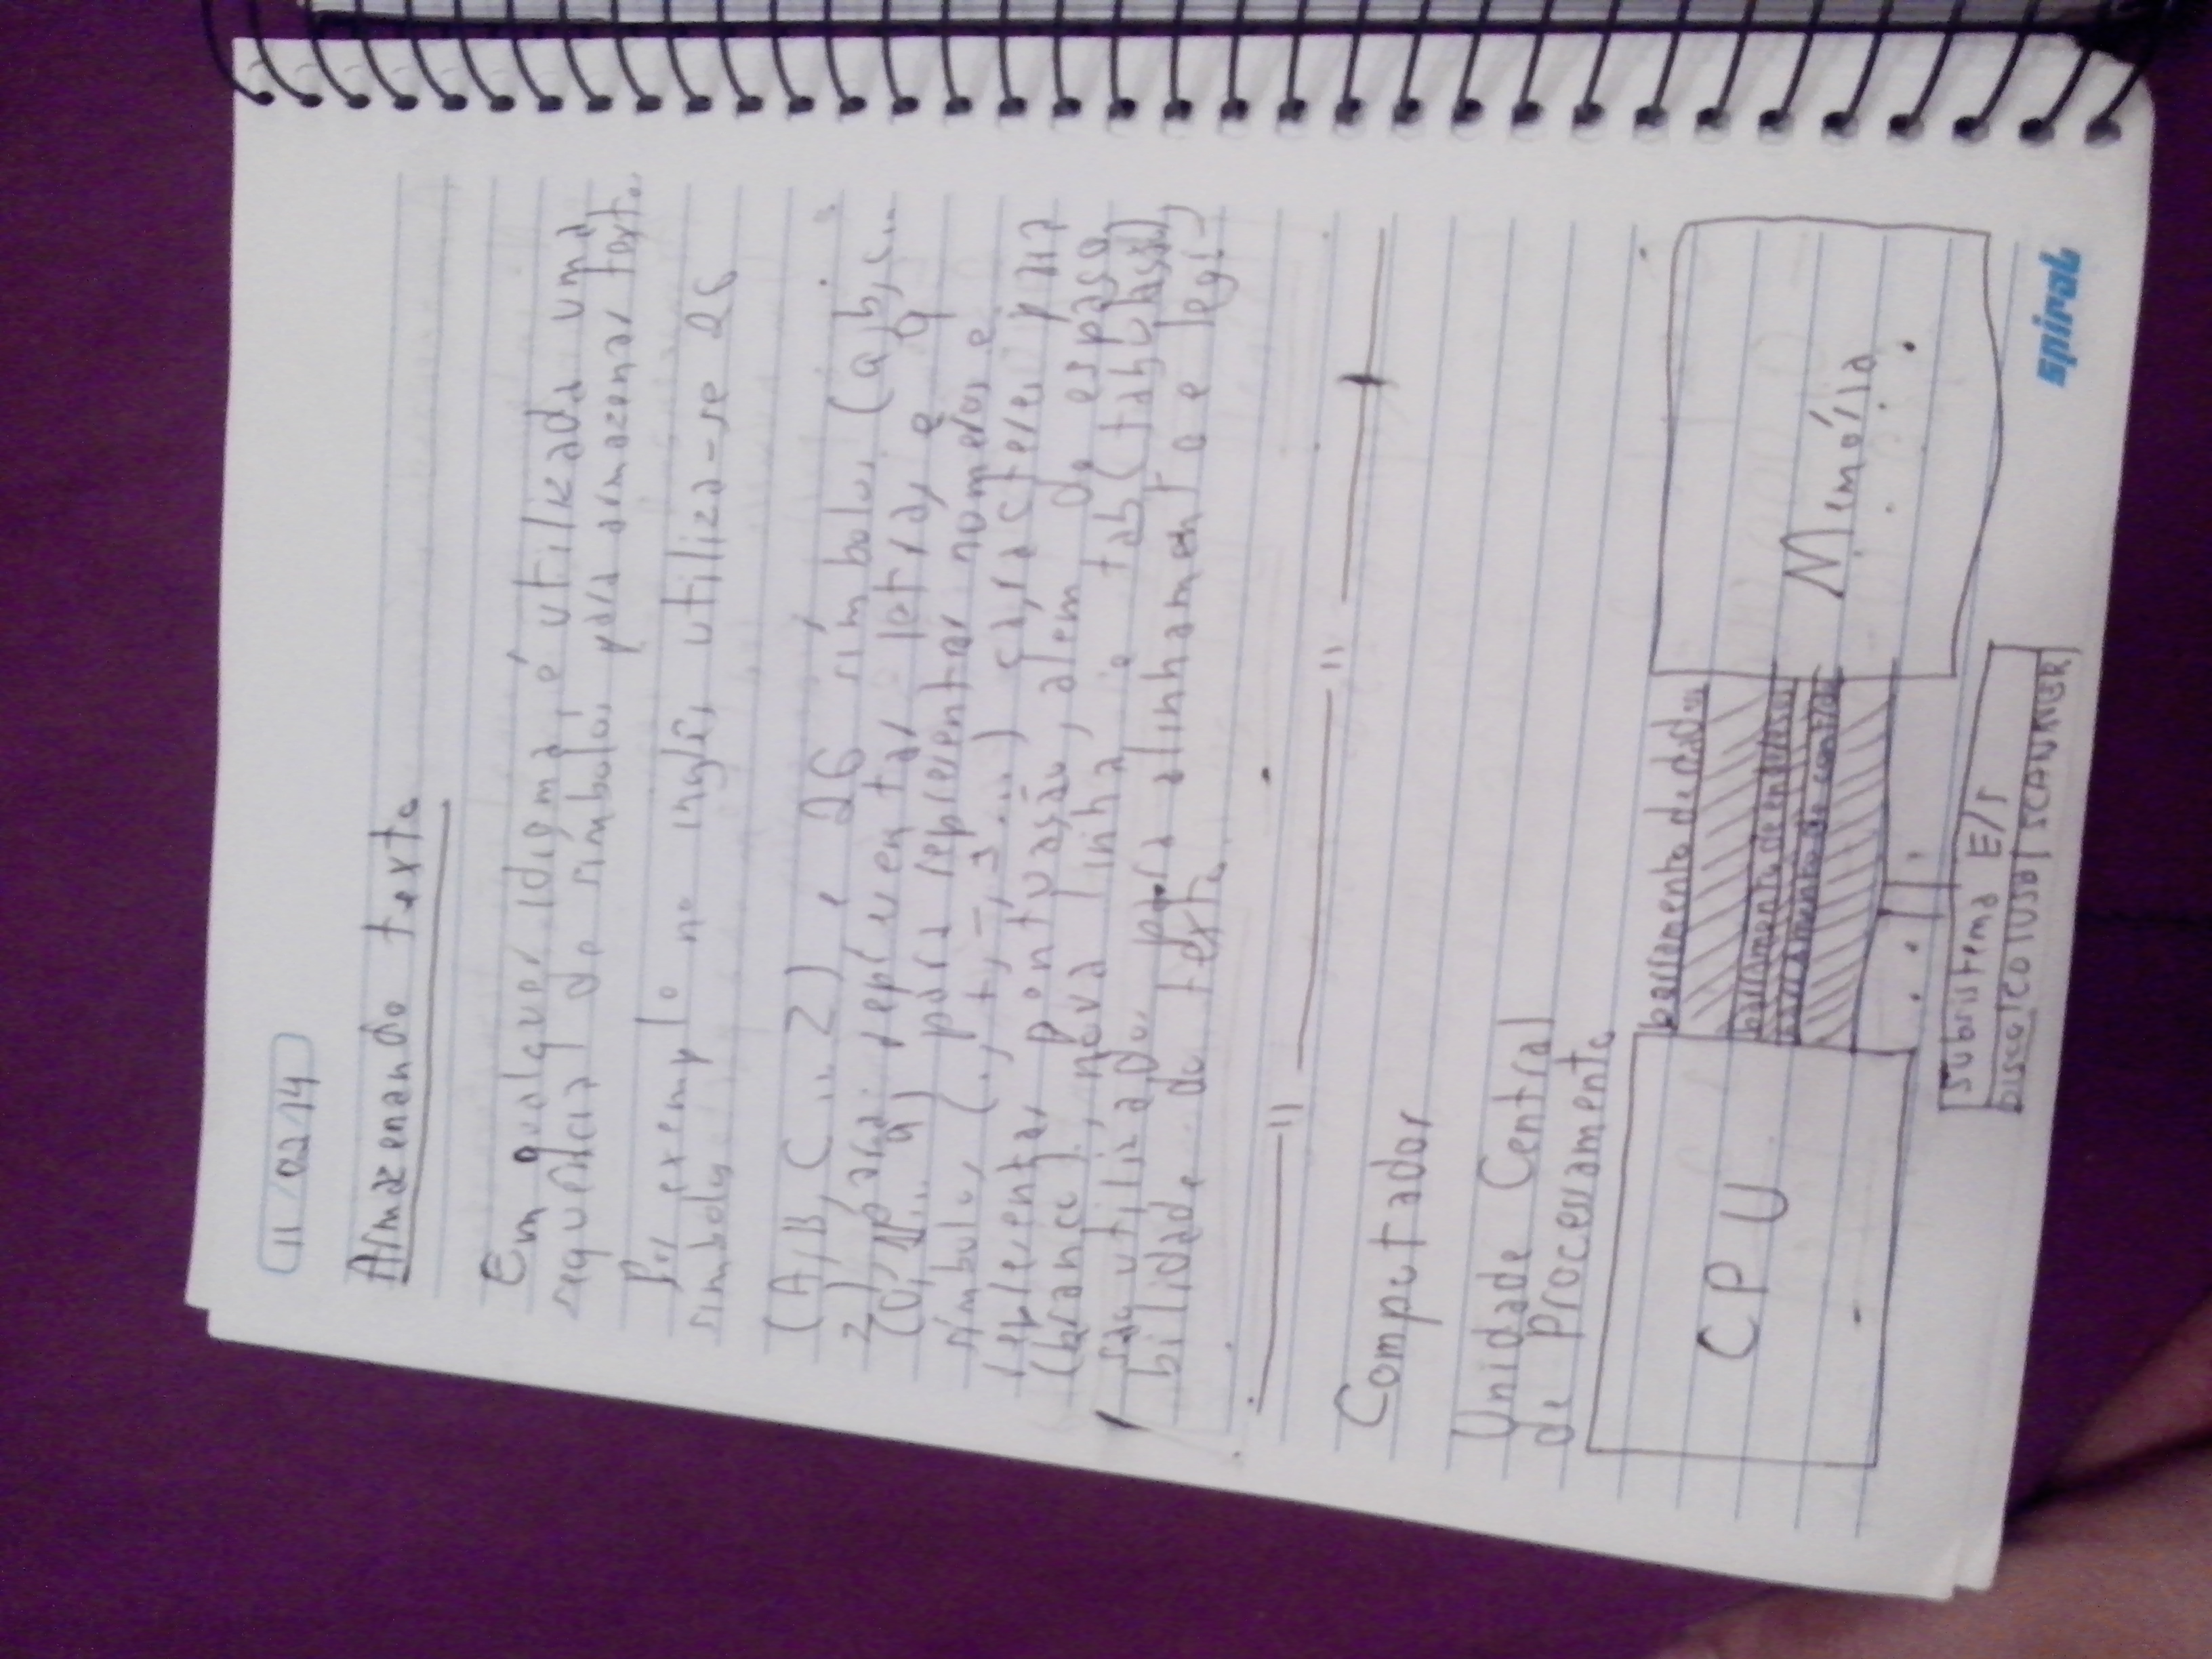 11/02/14
Armazenando texto
Em qualquer idioma, é utilizada uma
sequência de símbolos para armazenar texto.
Por exemplo no inglês utiliza-se 26
símbolos
(A, B, C ... Z), e 26 símbolos (a, b, c...
z), para representar letras, e 9
(0, 1,... 9) para representar números e
símbolos (., +, -, ...) caracteres para
representar pontuasão, além de espaso
(branco), nova linha e tab (tabulasão),
são utilizados para alinhamento e legi-
bilidade do texto.
Computador
Unidade Central
de Processamento
CPU
barramento de dados
barramento de endereços
barramento de controle
Memória
Subsistema E/S
DISCO | CD | USB | SCANNER
spiral